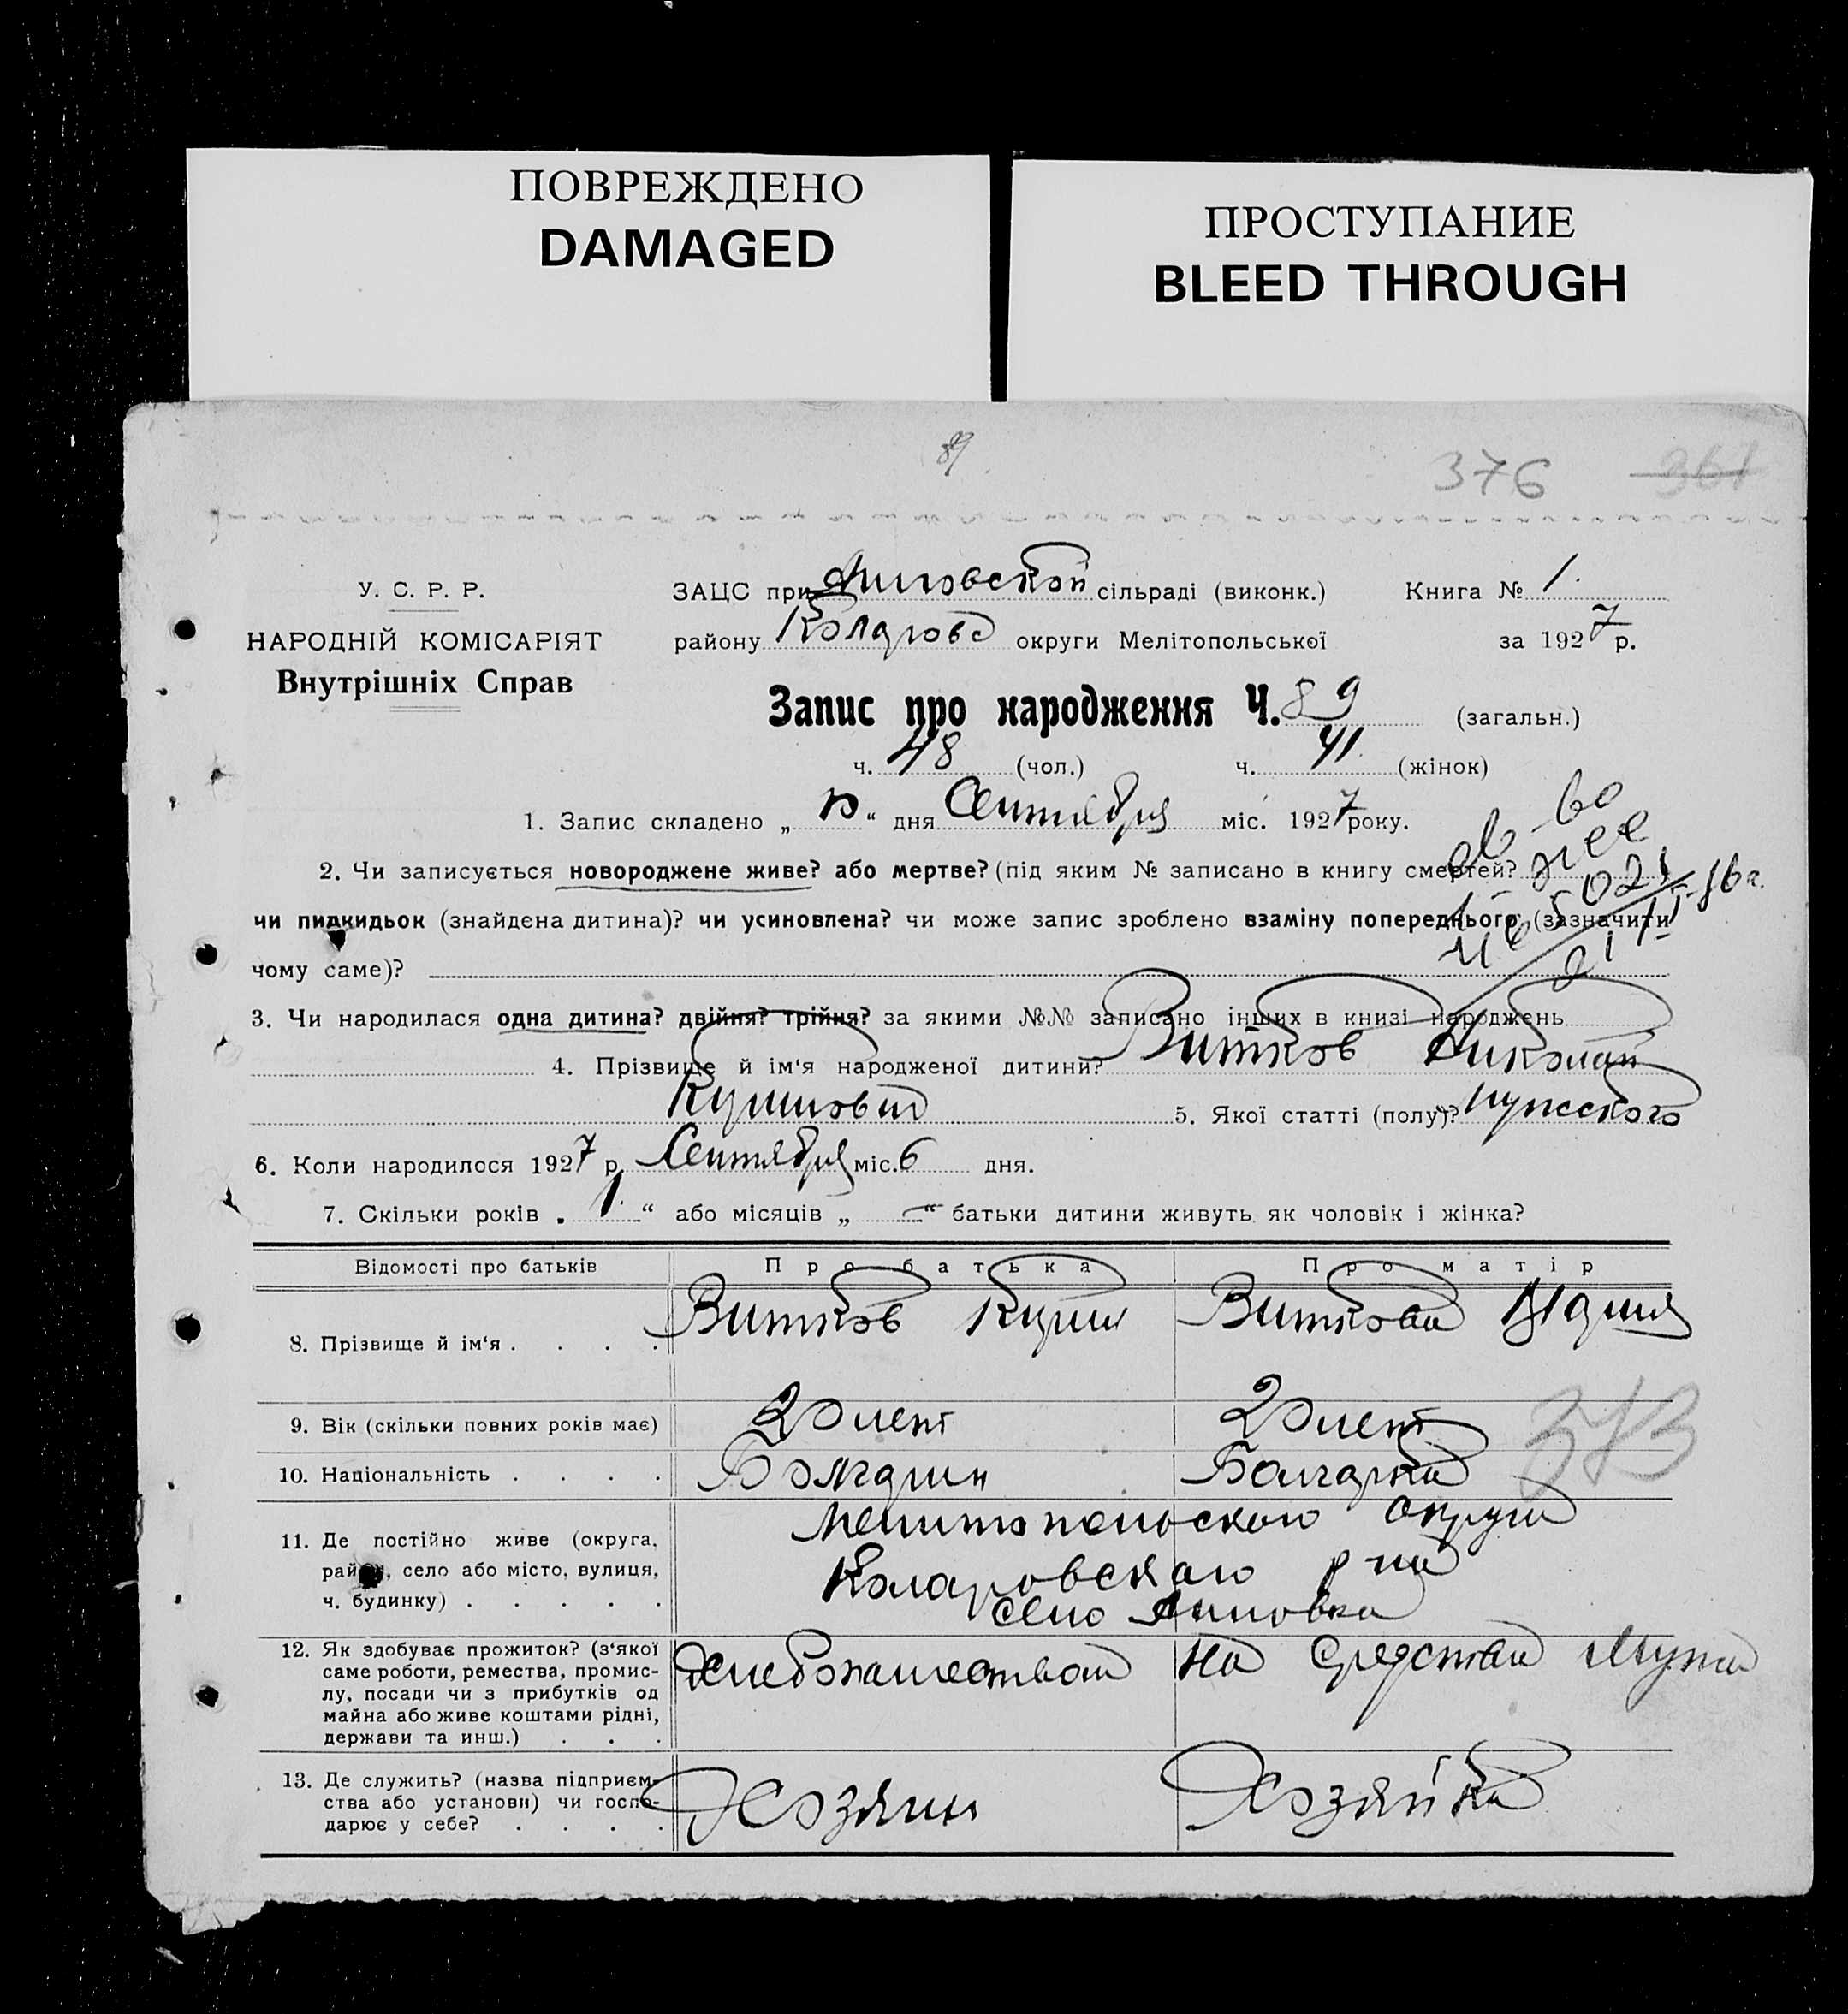 ПОВРЕЖДЕНО
DAMAGED
ПРОСТУПАНИЕ
BLEED THROUGH
89
376 361
У. С. Р. Р.
НАРОДНІЙ КОМІСАРІЯТ
Внутрішніх Справ
ЗАЦС при сільраді (виконк.) Книга № 1.
району округи Мелітопольської за 1927 р.
Запис про народження Ч. 89 (загальн.)
ч. 48 (чол.) ч. 41 (жінок)
1. Запис складено „ “ дня Сентября міс. 1927 року.
2. Чи записується новороджене живе? або мертве? (під яким № записано в книгу смертей?
чи пидкидьок (знайдена дитина)? чи усиновлена? чи може запис зроблено взаміну попереднього (зазначити
чому саме)?
3. Чи народилася одна дитина? двійня? трійня? за якими №№ записано інших в книзі народжень
4. Прізвище й ім‘я народженої дитини? Витков Николай
5. Якої статті (полу)? мужского
6. Коли народилося 1927 р. Сентября міс. 6 дня.
7. Скільки років „ 1. “ або місяців „ — “ батьки дитини живуть як чоловік і жінка?
Відомості про батьків Про батька Про матір
8. Прізвище й ім‘я . . . . Витков Виткова Мария
9. Вік (скільки повних років має) 20 лет 20 лет
373
10. Національність . . . . Болгарин Болгарка
11. Де постійно живе (округа, район, село або місто, вулиця, ч. будинку) . . . . .
Мелитопольского округа
Коларовского р-на
село Анновка
12. Як здобуває прожиток? (з‘якої саме роботи, ремества, промислу, посади чи з прибутків од майна або живе коштами рідні, держави та инш.) . . .
Хлебопашеством На средства мужа
13. Де служить? (назва підприємства або установи) чи господарює у себе? . . . .
Хозяин Хозяйка